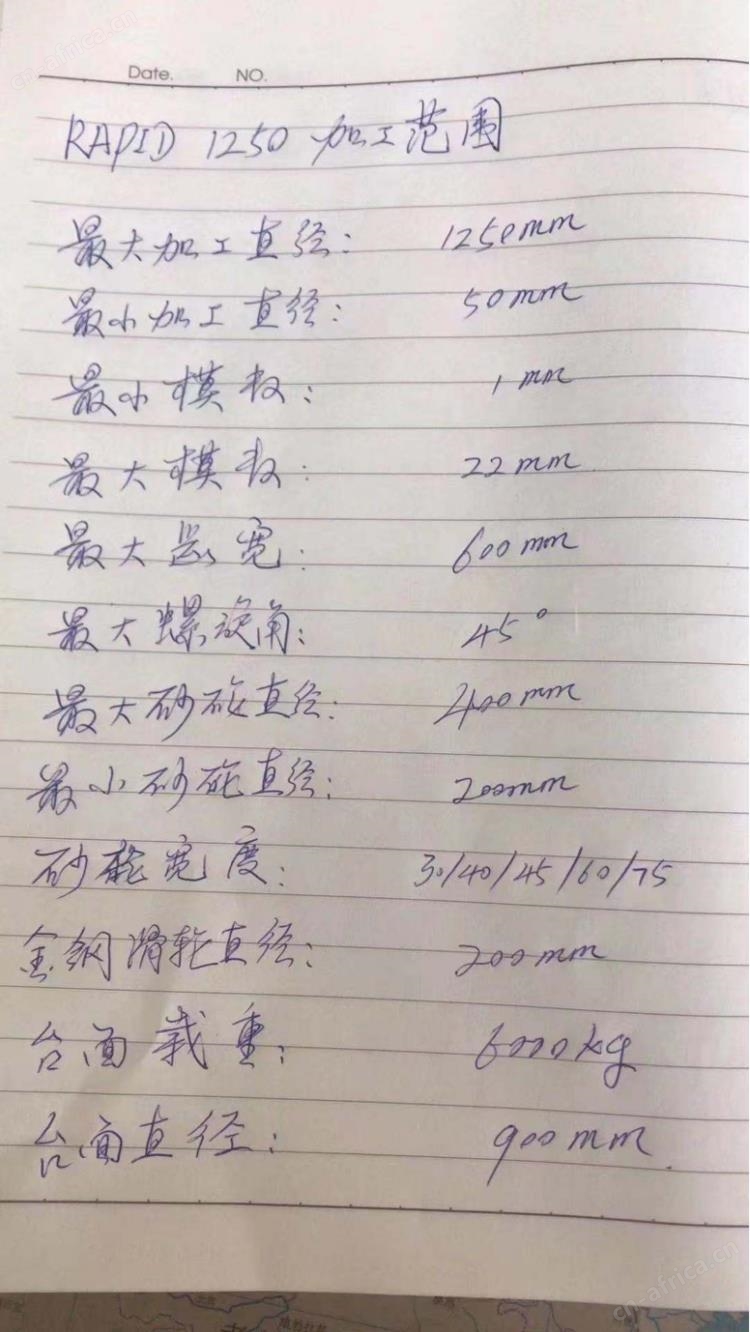 Date. NO.
RAPID 1250 加工范围
最大加工直径: 1250mm
最小加工直径: 50mm
最小模数: 1mm
最大模数: 22mm
最大齿宽: 600mm
最大螺旋角: 45°
最大砂轮直径: 400mm
最小砂轮直径: 200mm
砂轮宽度: 30/40/45/60/75
金钢滑轮直径: 200mm
台面载重: 6000kg
台面直径: 900mm.
cn.africa.cn